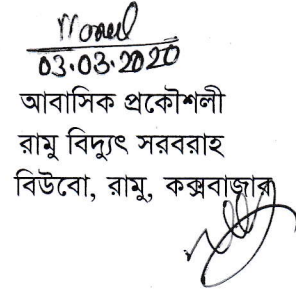 03.03.2020
আবাসিক প্রকৌশলী
রামু বিদ্যুৎ সরবরাহ
বিউবো, রামু, কক্সবাজার